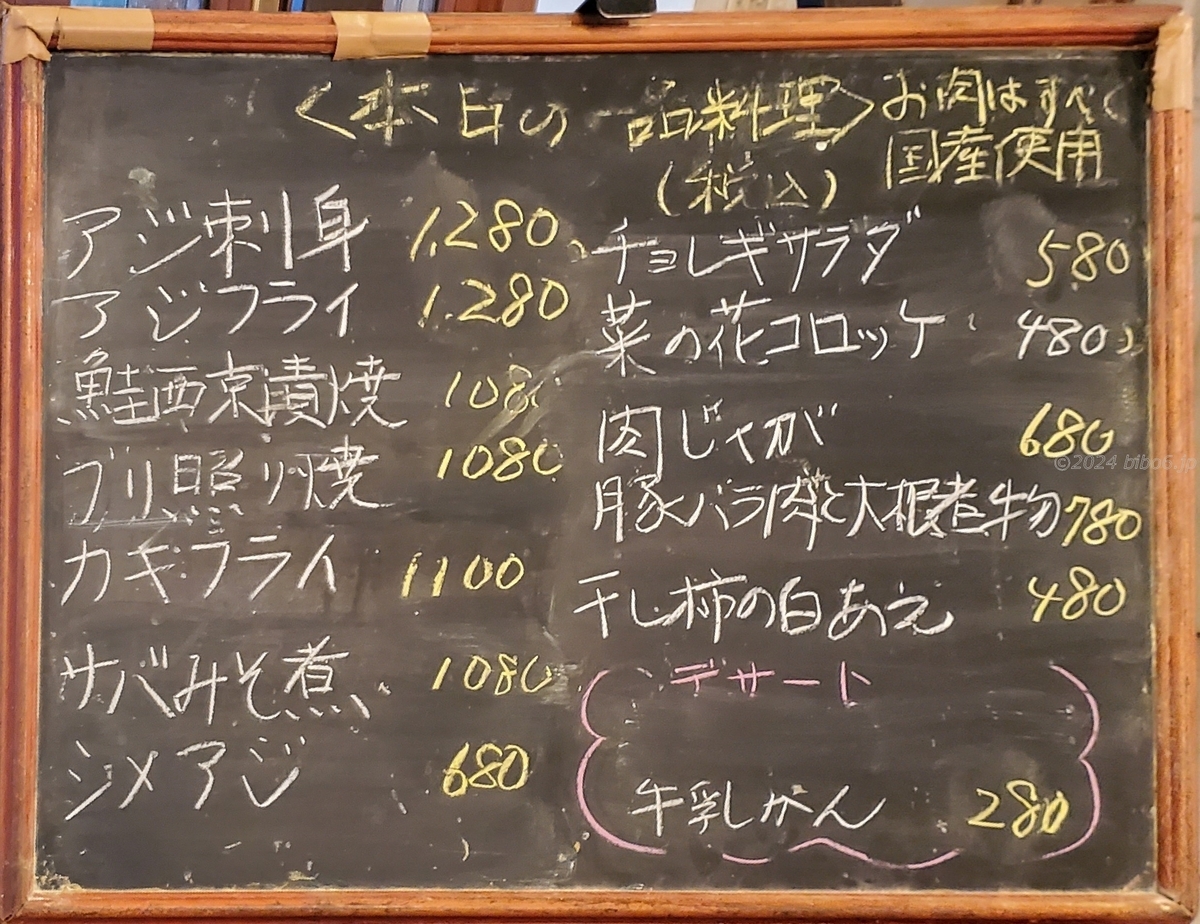 <本日の一品料理>
(税込)
お肉はすべて
国産使用
アジ刺身 1,280
アジフライ 1.280
鮭西京漬焼 1080
ブリ照り焼 1080
カキフライ 1100
サバみそ煮 1080
シメアジ 680
チョレギサラダ 580
菜の花コロッケ 480
肉じゃが 680
豚バラ肉と大根煮物 780
干し柿の白あえ 480
デザート
牛乳かん 280
©2024 bibo6